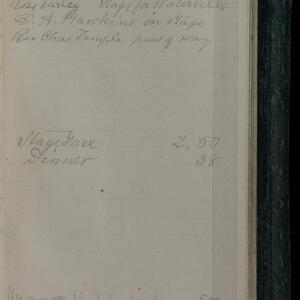 Stage for Waterville
D. A. Hawkins on Stage
Rev Chas Temple part of way
Stage Fare 2,50
Dinner 38